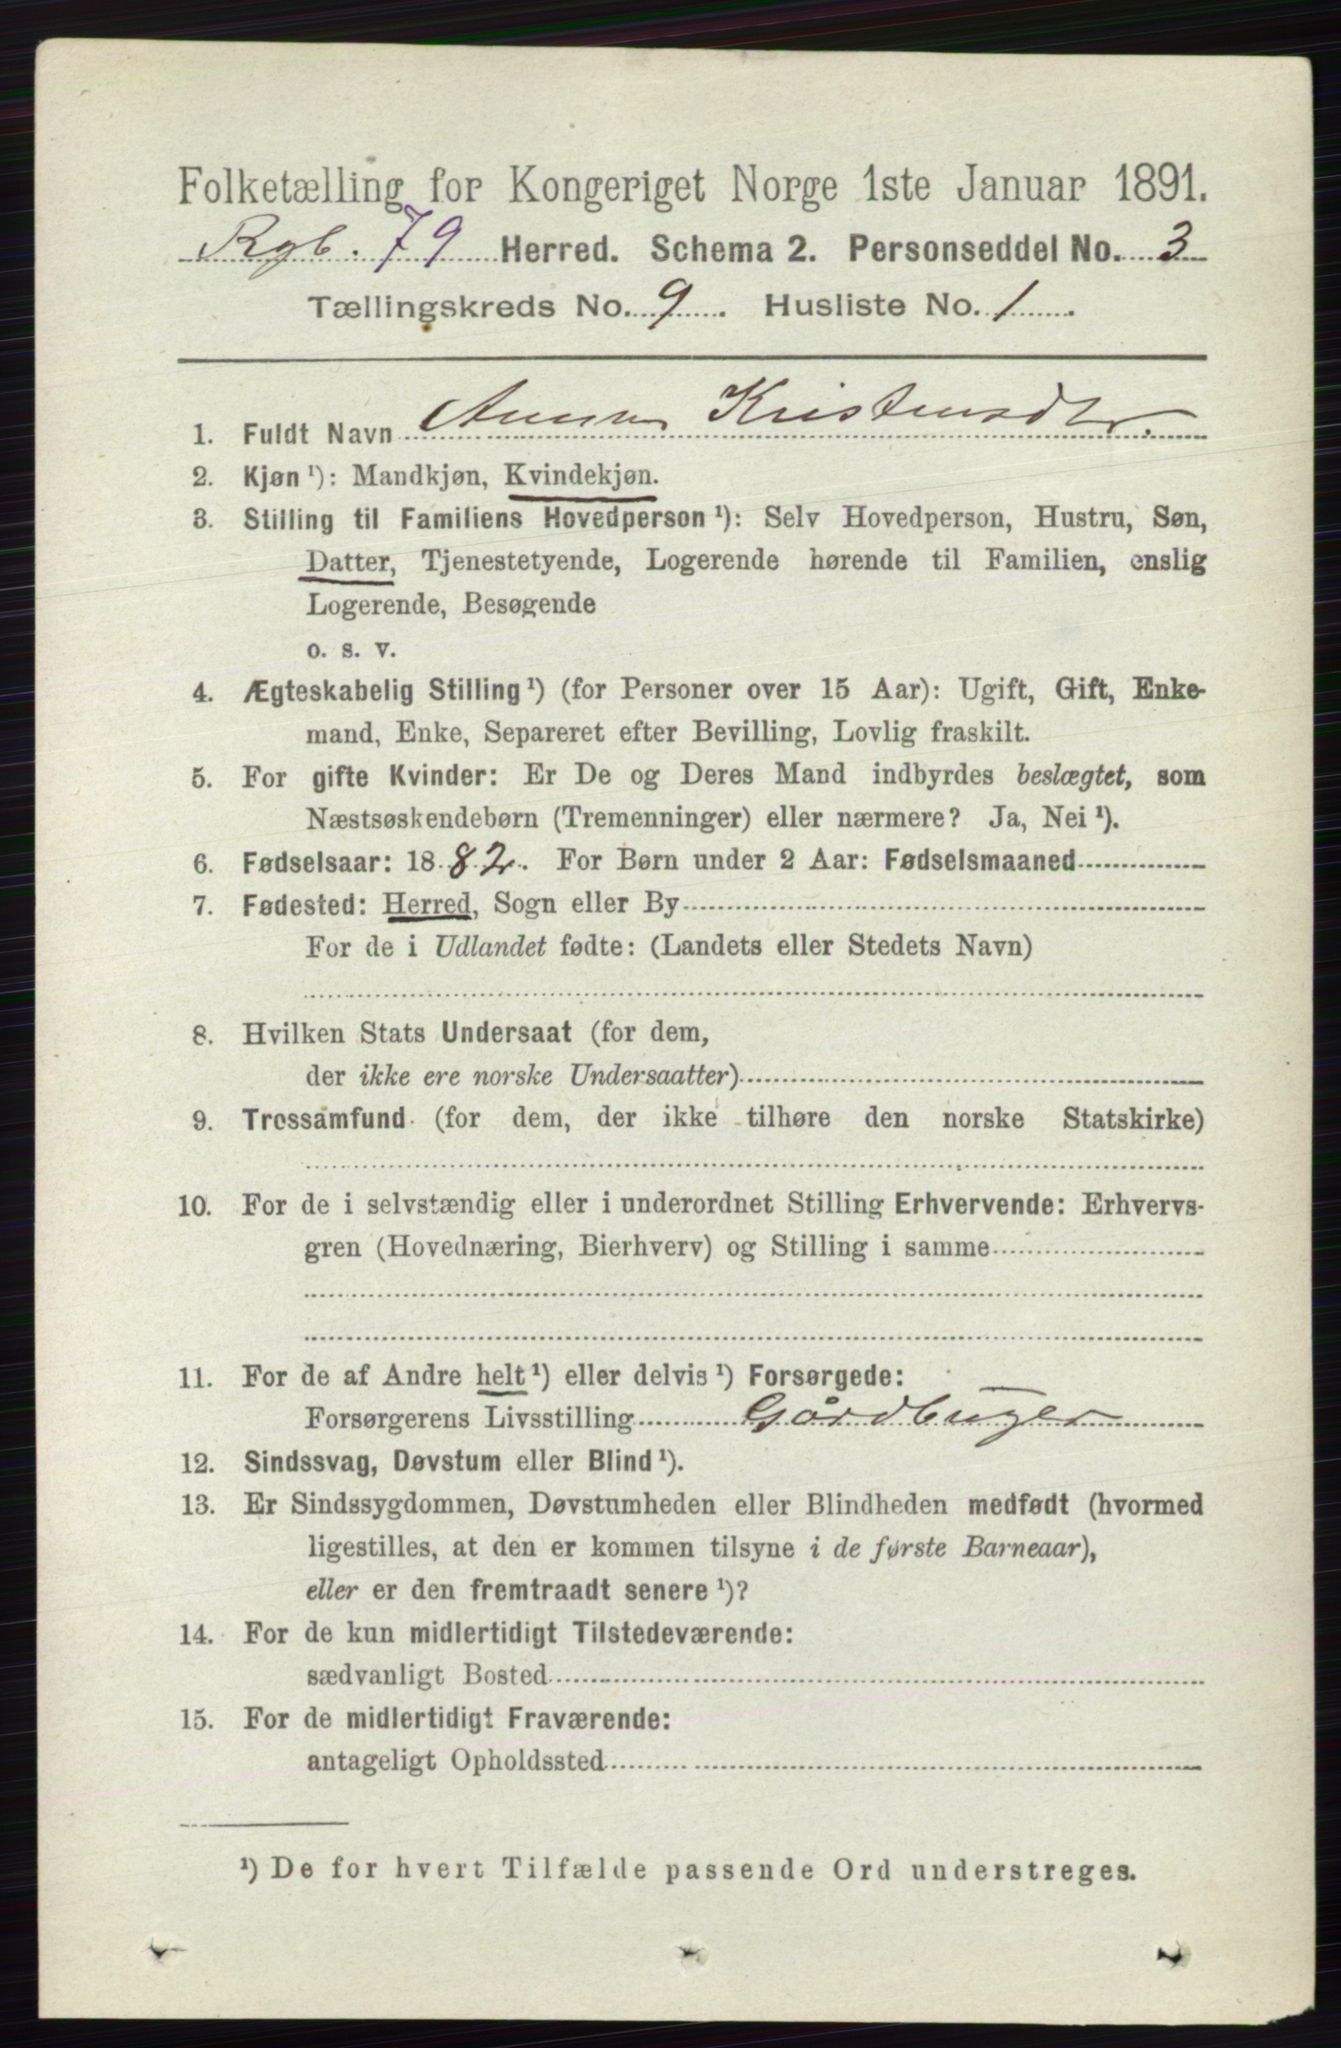 Folketælling for Kongeriget Norge 1ste Januar 1891.
Rgb. 79 Herred. Schema 2. Personseddel No. 3
Tællingskreds No. 9. Husliste No. 1.
1. Fuldt Navn Anna Kristensdtr.
2. Kjøn ¹): Mandkjøn, Kvindekjøn.
3. Stilling til Familiens Hovedperson ¹): Selv Hovedperson, Hustru, Søn,
Datter, Tjenestetyende, Logerende hørende til Familien, enslig
Logerende, Besøgende
o. s. v.
4. Ægteskabelig Stilling ¹) (for Personer over 15 Aar): Ugift, Gift, Enke-
mand, Enke, Separeret efter Bevilling, Lovlig fraskilt.
5. For gifte Kvinder: Er De og Deres Mand indbyrdes beslægtet, som
Næstsøskendebørn (Tremenninger) eller nærmere? Ja, Nei ¹).
6. Fødselsaar: 1882. For Børn under 2 Aar: Fødselsmaaned
7. Fødested: Herred, Sogn eller By
For de i Udlandet fødte: (Landets eller Stedets Navn)
8. Hvilken Stats Undersaat (for dem,
der ikke ere norske Undersaatter)
9. Trossamfund (for dem, der ikke tilhøre den norske Statskirke)
10. For de i selvstændig eller i underordnet Stilling Erhvervende: Erhvervs-
gren (Hovednæring, Bierhverv) og Stilling i samme
11. For de af Andre helt ¹) eller delvis ¹) Forsørgede:
Forsørgerens Livsstilling Gårdbruger
12. Sindssvag, Døvstum eller Blind ¹).
13. Er Sindssygdommen, Døvstumheden eller Blindheden medfødt (hvormed
ligestilles, at den er kommen tilsyne i de første Barneaar),
eller er den fremtraadt senere ¹)?
14. For de kun midlertidigt Tilstedeværende:
sædvanligt Bosted
15. For de midlertidigt Fraværende:
antageligt Opholdssted
¹) De for hvert Tilfælde passende Ord understreges.